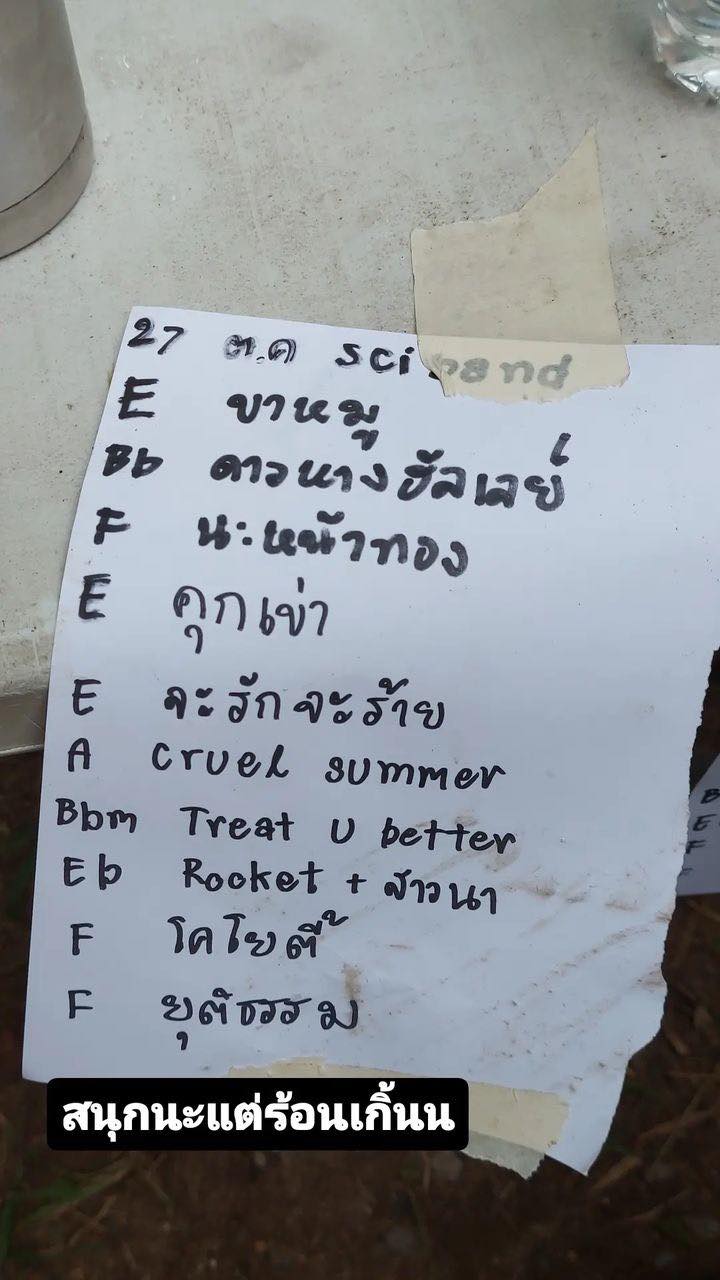 27 ต.ค sci band
E ขาหมู
Bb ดาวหางฮัลเลย์
F นะหน้าทอง
E คุกเข่า
E จะรักจะร้าย
A cruel summer
Bbm Treat U better
Eb Rocket + สาวนา
F โคโยตี้
F ยุติธรรม
B
E
F
สนุกนะแต่ร้อนเกิ้นน